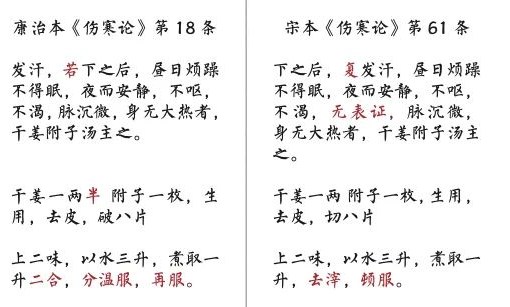 康治本《伤寒论》第 18 条
发汗，若下之后，昼日烦躁
不得眠，夜而安静，不呕，
不渴，脉沉微，身无大热者，
干姜附子汤主之。
干姜一两半 附子一枚，生
用，去皮，破八片
上二味，以水三升，煮取一
升二合，分温服，再服。
宋本《伤寒论》第 61 条
下之后，复发汗，昼日烦躁
不得眠，夜而安静，不呕，
不渴，无表证，脉沉微，
身无大热者，干姜附子汤主
之。
干姜一两 附子一枚，生用，
去皮，切八片
上二味，以水三升，煮取一
升，去滓，顿服。